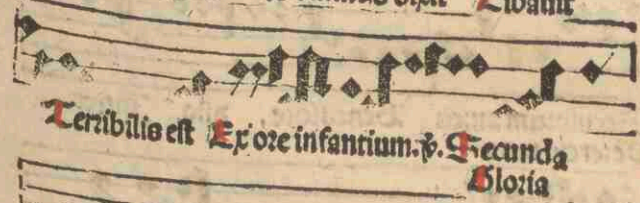 Terribilis est Ex ore infantium. ℣. Secunda
Gloria